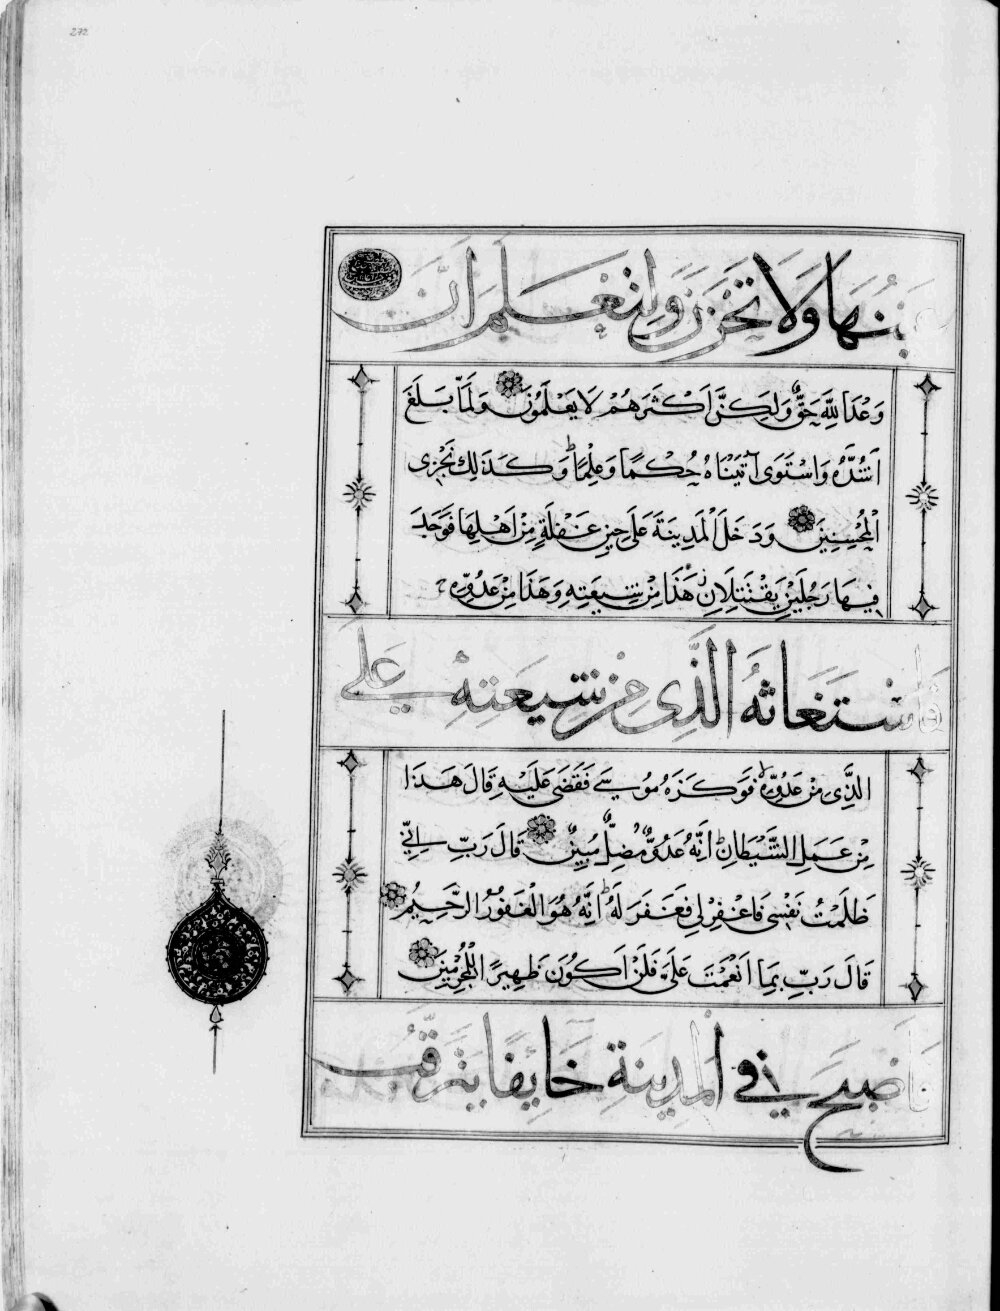 272
عينها ولا تحزن ولتعلم ان
وَعْدَ اللَّهِ حَقٌّ وَلَكِنَّ اَكْثَرَهُمْ لَا يَعْلَمُونَ وَلَمَّا بَلَغَ
اَشُدَّهُ وَاسْتَوَى آتَيْنَاهُ حُكْمًا وَعِلْمًا وَكَذَلِكَ نَجْزِى
الْمُحْسِنِينَ وَدَخَلَ الْمَدِينَةَ عَلَى حِينِ غَفْلَةٍ مِنْ اَهْلِهَا فَوَجَدَ
فِيهَا رَجُلَيْنِ يَقْتَتِلَانِ هَذَا مِنْ شِيعَتِهِ وَهَذَا مِنْ عَدُوِّهِ
فَاسْتَغَاثَهُ الَّذِى مِنْ شِيعَتِهِ عَلَى
الَّذِى مِنْ عَدُوِّهِ فَوَكَزَهُ مُوسَى فَقَضَى عَلَيْهِ قَالَ هَذَا
مِنْ عَمَلِ الشَّيْطَانِ اِنَّهُ عَدُوٌّ مُضِلٌّ مُبِينٌ قَالَ رَبِّ اِنِّى
ظَلَمْتُ نَفْسِى فَاغْفِرْ لِى فَغَفَرَ لَهُ اِنَّهُ هُوَ الْغَفُورُ الرَّحِيمُ
قَالَ رَبِّ بِمَا اَنْعَمْتَ عَلَىَّ فَلَنْ اَكُونَ ظَهِيرًا لِلْمُجْرِمِينَ
فَاَصْبَحَ فِى الْمَدِينَةِ خَايِفًا يَتَرَقَّبُ